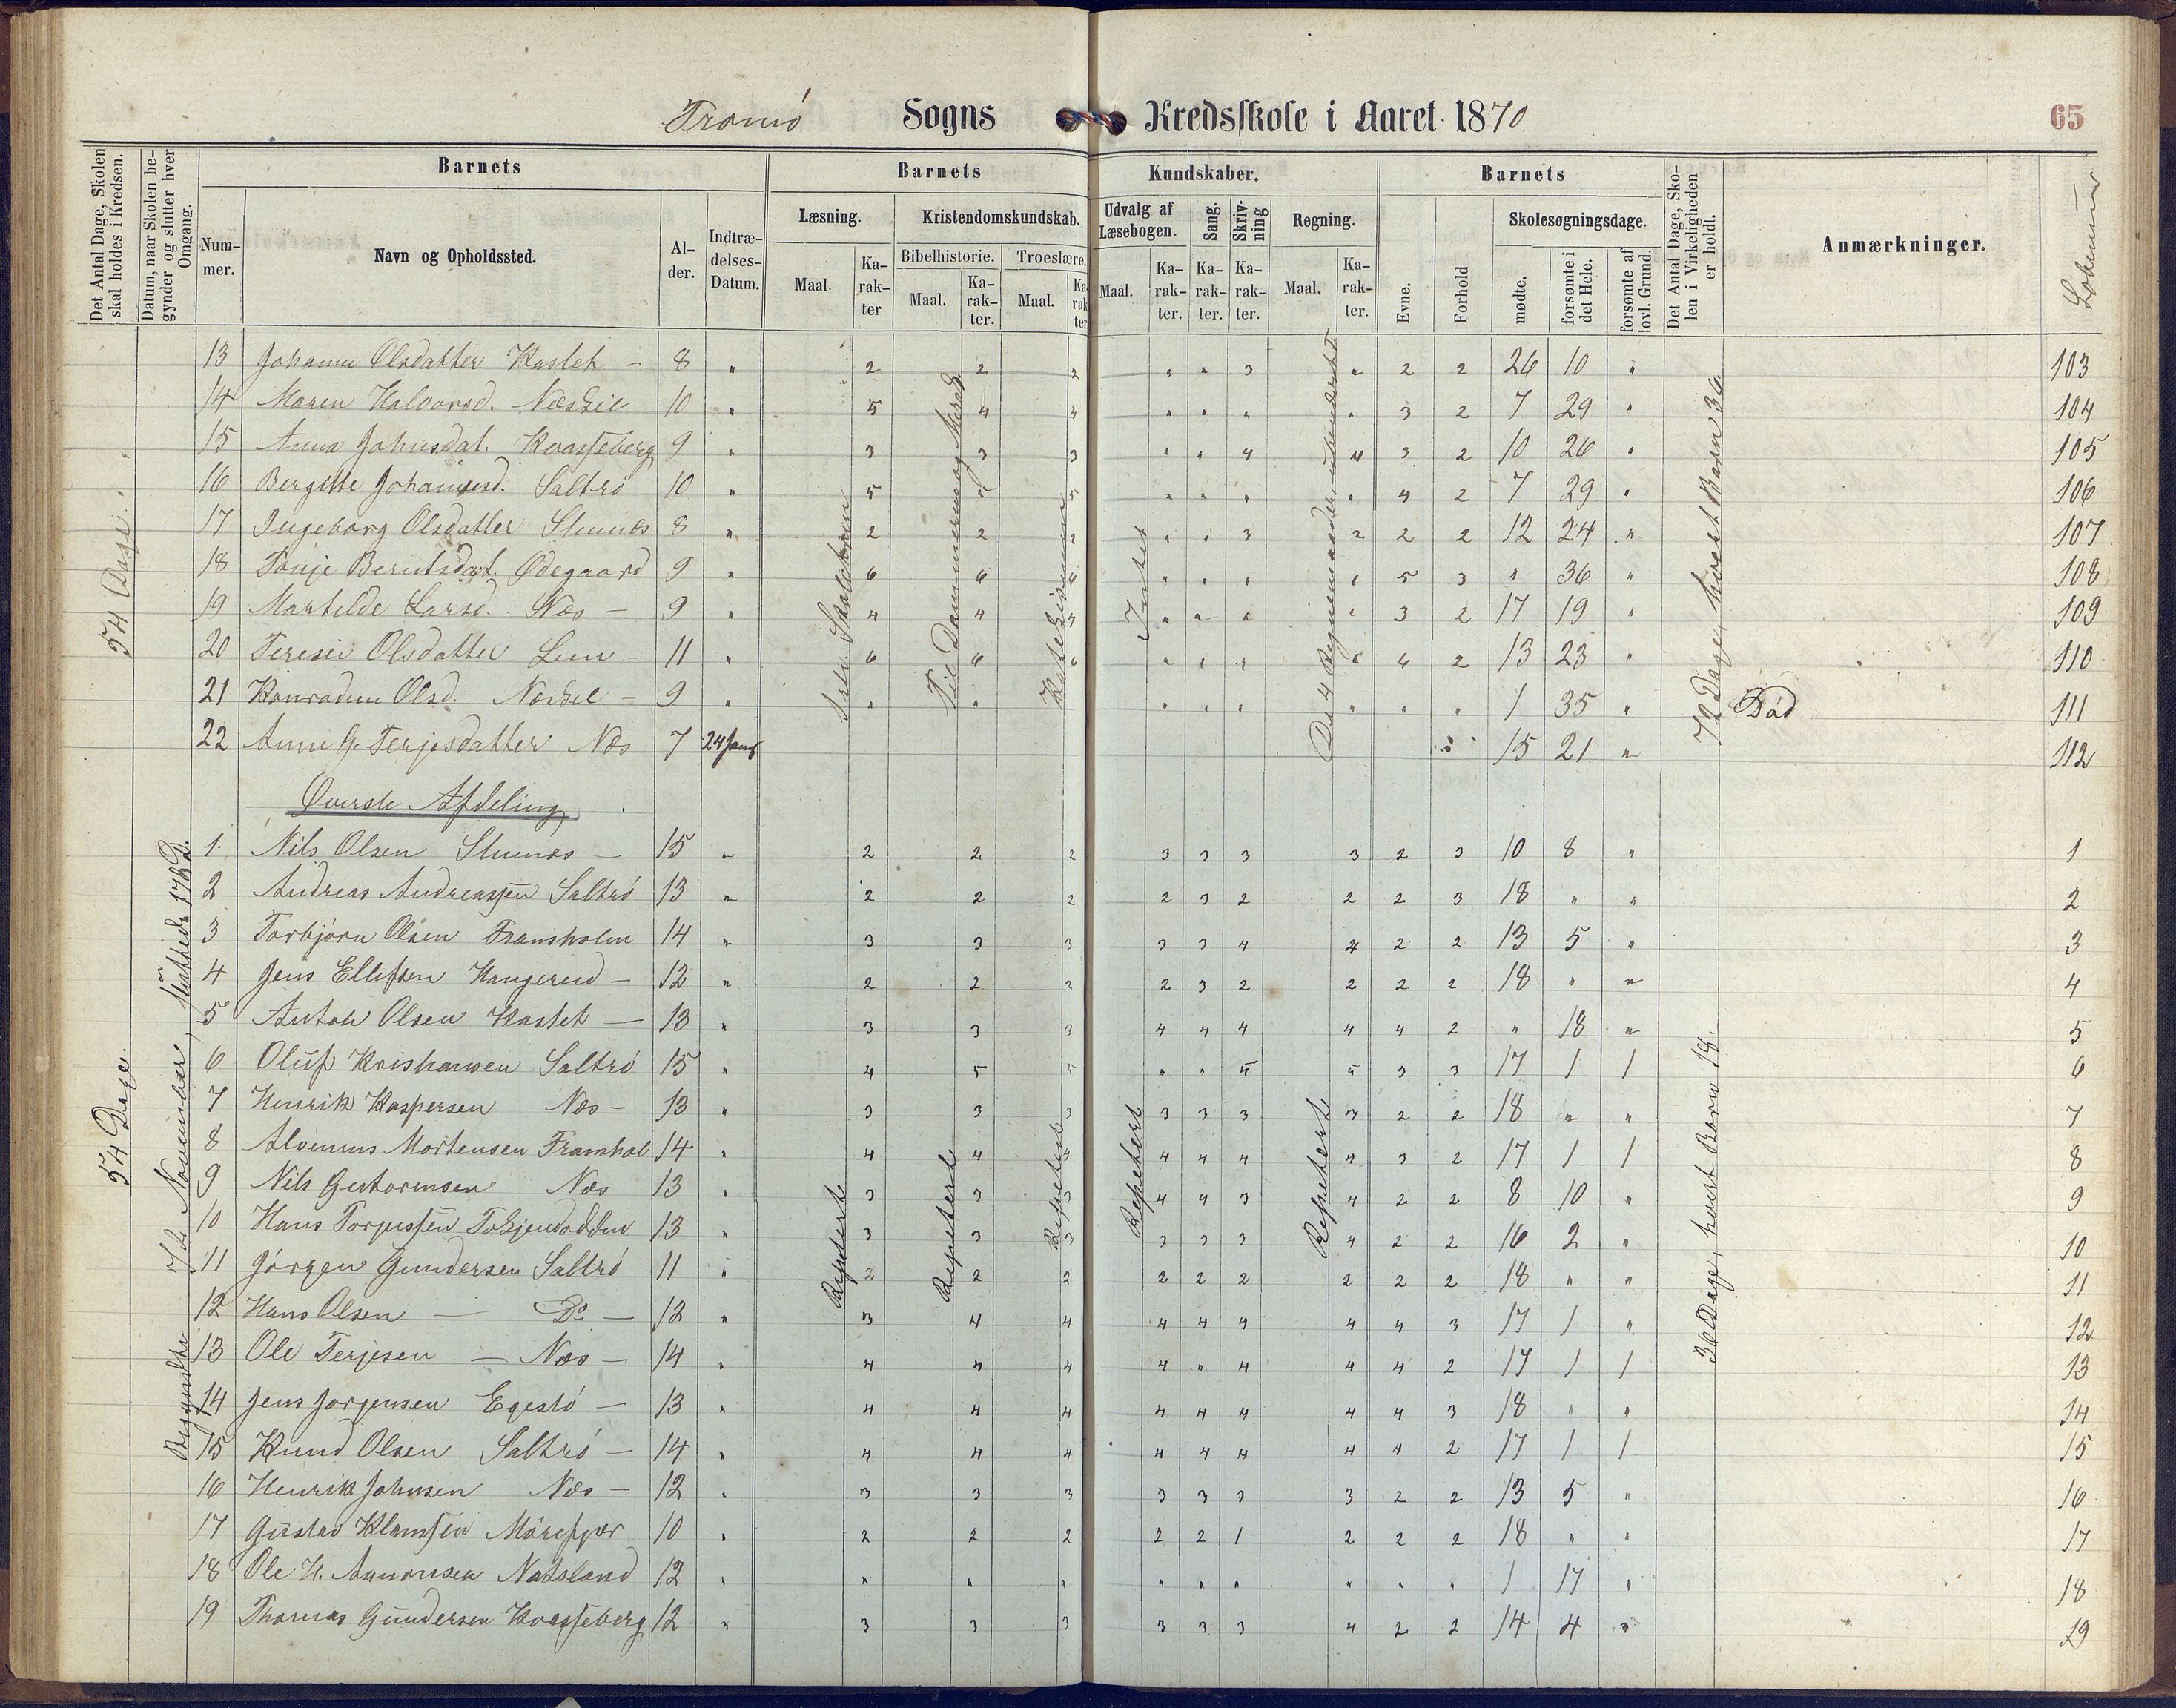 Tromö Sogns Kredsskole i Aaret 1870
65
Det Antal Dage, Skolen skal holdes i Kredsen.
Datum, naar Skolen begynder og slutter hver Omgang.
Barnets
Barnets
Kundskaber.
Barnets
Det Antal Dage, Skolen i Virkeligheden er holdt.
Anmærkninger.
Løbenumr
Nummer.
Navn og Opholdssted.
Alder.
Indtrædelses-Datum.
Læsning.
Kristendomskundskab.
Udvalg af Læsebogen.
Sang.
Skrivning
Regning.
Evne.
Forhold
Skolesøgningsdage.
Bibelhistorie.
Troeslære.
Maal.
Karakter
Maal.
Karakter.
Maal.
Karakter
Maal.
Karakter.
Karakter.
Karakter.
Maal.
Karakter.
mødte.
forsømte i det Hele.
forsømte af lovl. Grund.
54 Dage.
72 Dage, hvert Barn 36
13 Johanne Olsdatter Kastet — 8 " 2 2 2 " " 3 " 2 2 26 10 " 103
14 Maren Halvorsd. Næskil 10 " 5 4 4 " " " " 3 2 7 29 " 104
15 Anna Johnsdat. Kvasseberg 9 " 3 3 3 " " 4 4 3 2 10 26 " 105
16 Bergitte Johannesd. Saltrö 10 " 5 5 5 " " " " 4 2 7 29 " 106
17 Ingeborg Olsdatter Stuenes 8 " 2 2 2 " " 3 2 2 2 12 24 " 107
18 Tonje Berntsdat. Ødegaard 9 " 6 6 6 " " " " 5 3 " 36 " 108
19 Martilde Larsd. Næs — 9 " 4 4 4 " " " " 3 2 17 19 " 109
20 Teresie Olsdatter Lun 11 " 6 6 6 " " " " 4 2 13 23 " 110
21 Konradine Olsd. Næskel — 9 " " " " " " " " " 1 35 " Död 111
22 Anne G. Terjesdatter Næs 7 24 Janr " 15 21 " 112
Intet
Øverste Afdeling
54 Dage.
Begyndte 7de November, sluttede 17 D.
36 Dage, hvert Barn 18.
Repetert
Repetert
Repetert
Repetert
Repetert
1. Nils Olsen Stuenes — 15 " 2 2 2 3 3 3 3 2 3 10 8 " 1
2 Andreas Andreassen Saltrö 13 " 2 2 2 2 3 2 2 2 3 18 " " 2
3 Torbjörn Olsen Framsholm 14 " 3 3 3 3 3 4 4 2 2 13 5 " 3
4 Jens Ellefsen Hangerud — 12 " 2 2 2 2 3 2 2 2 2 18 " " 4
5 Anton Olsen Kastet — 13 " 3 3 3 4 4 4 4 4 2 " 18 " 5
6 Oluf Kristiansen Saltrö 15 " 4 5 5 " " 5 5 3 3 17 1 1 6
7 Henrik Kaspersen Næs — 13 " 3 3 3 3 3 3 3 2 2 18 " " 7
8 Alvenus Mortensen Framshol 14 " 4 4 4 4 4 4 4 3 2 17 1 1 8
9 Nils Gustavensen Næs 13 " 3 3 3 4 4 3 4 2 2 8 10 " 9
10 Hans Torjussen 13 " 3 3 3 3 3 3 4 2 2 16 2 " 10
11 Jörgen Gundersen Saltrö 11 " 2 2 2 2 2 2 2 2 2 18 " " 11
12 Hans Olsen — Do — 12 " 3 4 4 4 4 4 4 4 3 17 1 " 12
13 Ole Terjesen — Næs — 14 " 4 4 4 4 " 4 4 4 2 17 1 1 13
14 Jens Jörgensen Egestö — 13 " 4 4 4 4 4 4 4 4 3 18 " " 14
15 Knud Olsen Saltrö — 14 " 4 4 4 4 4 4 4 4 2 17 1 1 15
16 Henrik Johnsen Næs — 12 " 3 3 3 3 3 3 3 2 2 13 5 " 16
17 Gustav Klemsen Mörefjær 10 " 2 2 2 2 2 1 2 2 2 18 " " 17
18 Ole H. Aanonsen Natsland 12 " " " " " " " " " " 1 17 " 18
19 Thomas Gundersen Kvasseberg 12 " 3 3 3 3 3 3 4 2 2 14 4 " 19